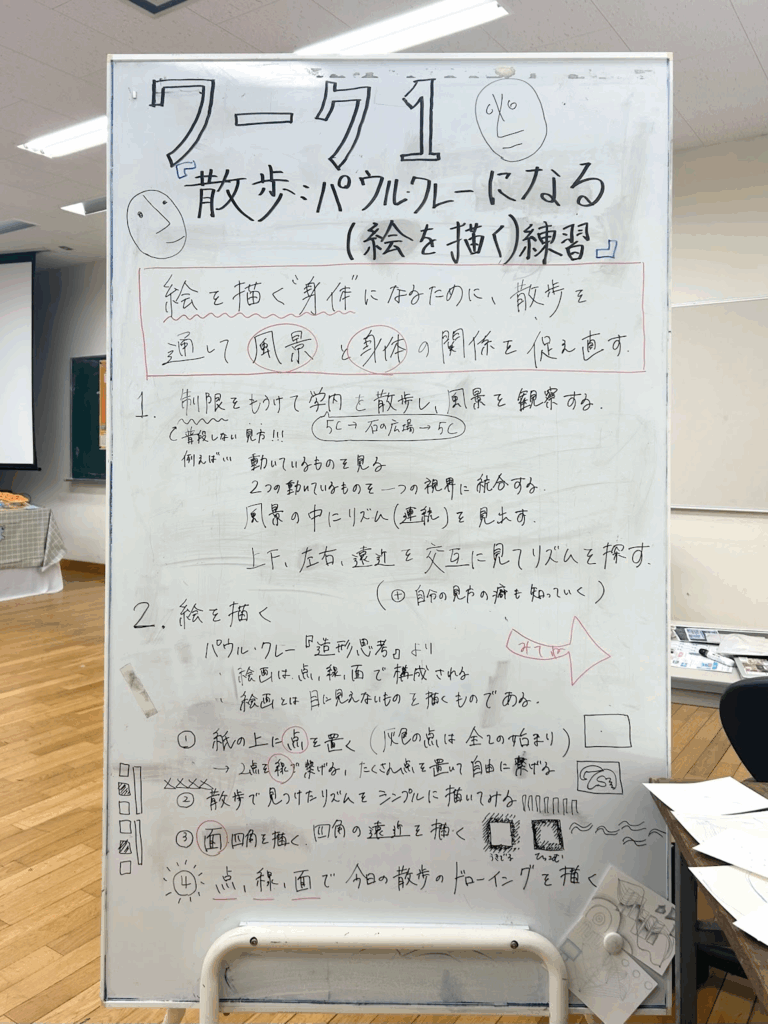 ワーク1
『散歩:パウル・クレーになる
(絵を描く)練習』
絵を描く"身体"になるために、散歩を
通して風景と身体の関係を捉え直す.
1. 制限をもうけて学内を散歩し、風景を観察する.
普段しない見方!!! 5C→石の広場→5C
例えば… 動いているものを見る
2つの動いているものを一つの視界に統合する.
風景の中にリズム(連続)を見出す.
上下、左右、遠近を交互に見てリズムを探す.
(⊕ 自分の見方の癖も知っていく)
2. 絵を描く
パウル・クレー『造形思考』より
・絵画は点,線,面で構成される
・絵画とは目に見えないものを描くものである.
みてね
① 紙の上に点を置く(灰色の点は全ての始まり)
→2点を線で繋げる,たくさん点を置いて自由に繋げる
② 散歩で見つけたリズムをシンプルに描いてみる
③ 面 四角を描く. 四角の遠近を描く
④ 点,線,面で今日の散歩のドローイングを描く